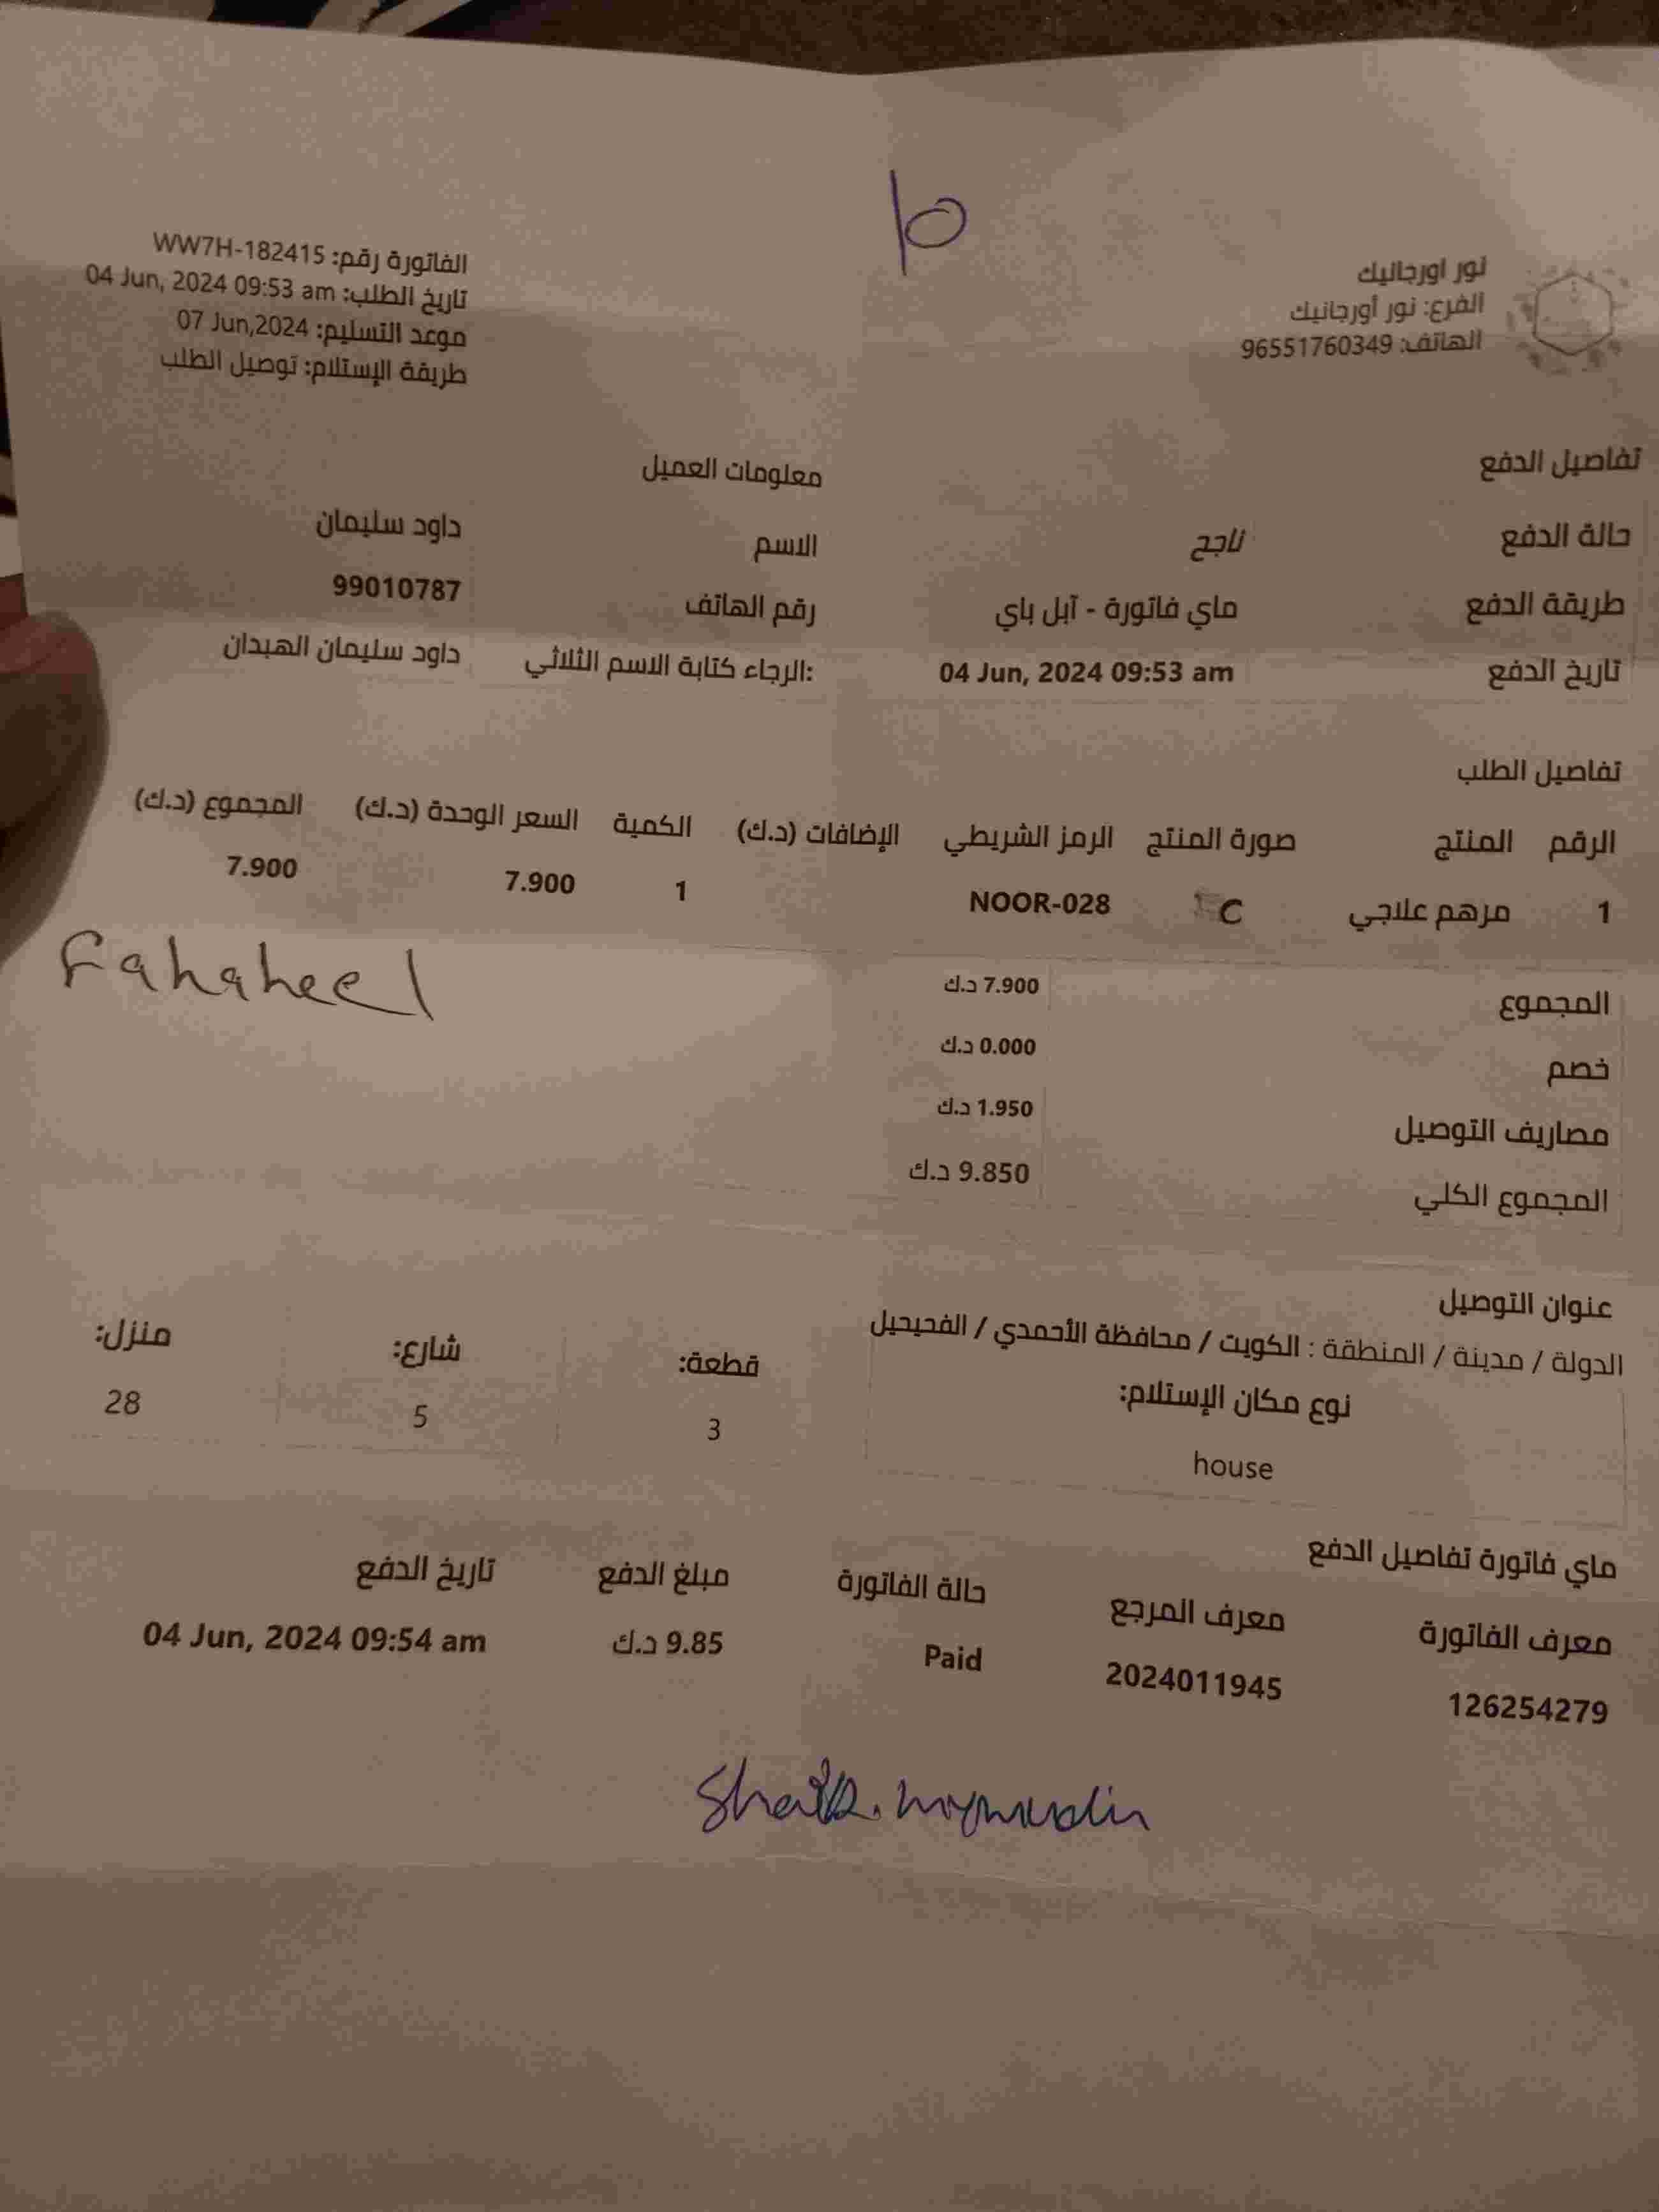 10
نور اورجانيك
الفرع: نور أورجانيك
الهاتف: 96551760349
الفاتورة رقم: WW7H-182415
تاريخ الطلب: 04 Jun, 2024 09:53 am
موعد التسليم: 07 Jun,2024
طريقة الإستلام: توصيل الطلب
تفاصيل الدفع
حالة الدفع ناجح
طريقة الدفع ماي فاتورة - آبل باي
تاريخ الدفع 04 Jun, 2024 09:53 am
معلومات العميل
الاسم داود سليمان
رقم الهاتف 99010787
الرجاء كتابة الاسم الثلاثي: داود سليمان الهبدان
تفاصيل الطلب
الرقم المنتج صورة المنتج الرمز الشريطي الإضافات (د.ك) الكمية السعر الوحدة (د.ك) المجموع (د.ك)
1 مرهم علاجي NOOR-028 1 7.900 7.900
Fahaheel
المجموع 7.900 د.ك
خصم 0.000 د.ك
مصاريف التوصيل 1.950 د.ك
المجموع الكلي 9.850 د.ك
عنوان التوصيل
الدولة / مدينة / المنطقة : الكويت / محافظة الأحمدي / الفحيحيل
نوع مكان الإستلام: قطعة: شارع: منزل:
house 3 5 28
ماي فاتورة تفاصيل الدفع
معرف الفاتورة معرف المرجع حالة الفاتورة مبلغ الدفع تاريخ الدفع
126254279 2024011945 Paid 9.85 د.ك 04 Jun, 2024 09:54 am